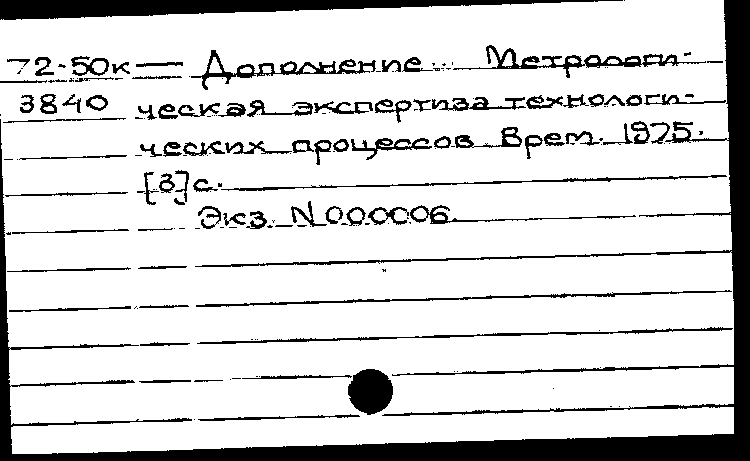 72-50к — Дополнение... Метрологи-
3840 ческая экспертиза технологи-
ческих процессов. Врем. 1975.
[3]с.
Экз. N 000006.